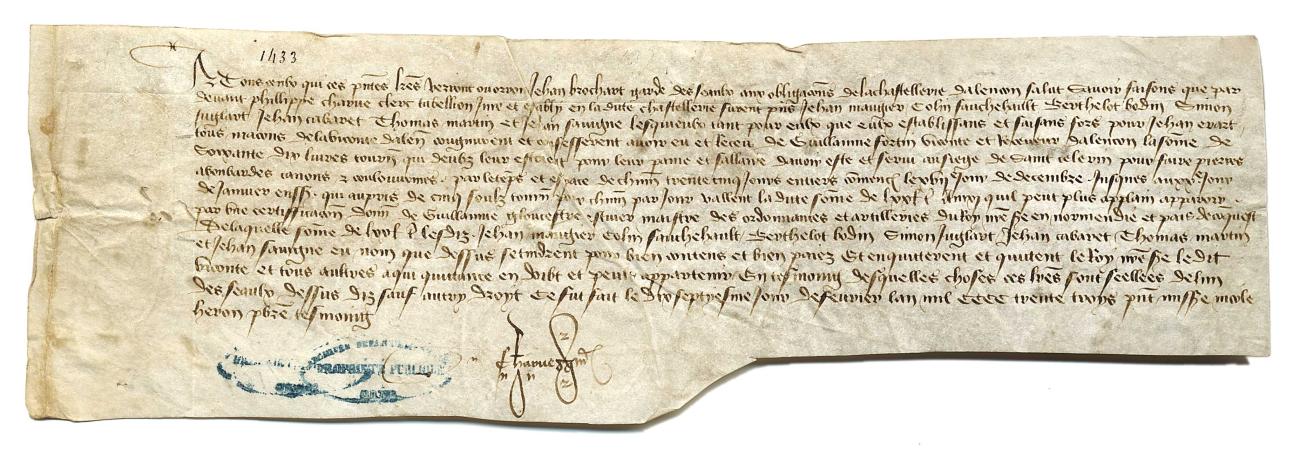 1433
A Tous ceulx qui ces pntes lres verront ou orront Jehan brochart garde des seaulx aux obligacons de la chastellerie dalencon salut Savoir faisons que par
devant phillippe charue clerc tabellion jure et estably en la dite chastellerie furent pns Jehan maugier Colin sauchehault Berthelot bodin Simon
Juglart Jehan cabaret Thomas martin et Jehan savigne lesqueulx tant pour eulx que eulx establissans et faisans fors pour Jehan evart
tous macons de la viconte dalen congnurent et confesserent avoir eu et receu de Guillaume fortin viconte et Receveur dalencon la some de
Soixante dix livres tourn qui deubz leur estoient pour leur paine et sallaire davoir este et servi au siege de Saint celerin pour faire pierres
a bonbardes canons & coulouvrines par le temps et espace de chun trente cinq jours entiers comenc le jour de decembre jusques au xxe jour
de Janvier enss qui au pris de cinq soulz tourn pour chun par jour vallent la dite some de lxx l t ainxi quil peut plus applain apparoir
par une certifficacon donn de Guillaume gloucestre escuier maistre des ordonnances et artilleries du Roy nre sire en normendie et pais de conquest
De laquelle some de lxx l t les diz Jehan maugier Colin sauchehault Berthelot bodin Simon Juglart Jehan cabaret Thomas martin
et Jehan savigne eu nom que dessus se tindrent pour bien contens et bien paiez Et en quicterent et quictent le Roy nre sire le dit
viconte et tous aultres a qui quictance en doibt et peut appartenir En tesmoing desquelles choses ces lres sont seellees de lun
des seaulx dessus diz sauf autry droyt Ce fut fait le dix septyesme jour de fevrier lan mil CCCC trente troys pnt missre mole
heron pbre tesmoing
Charue
PROPRIETE PUBLIQUE